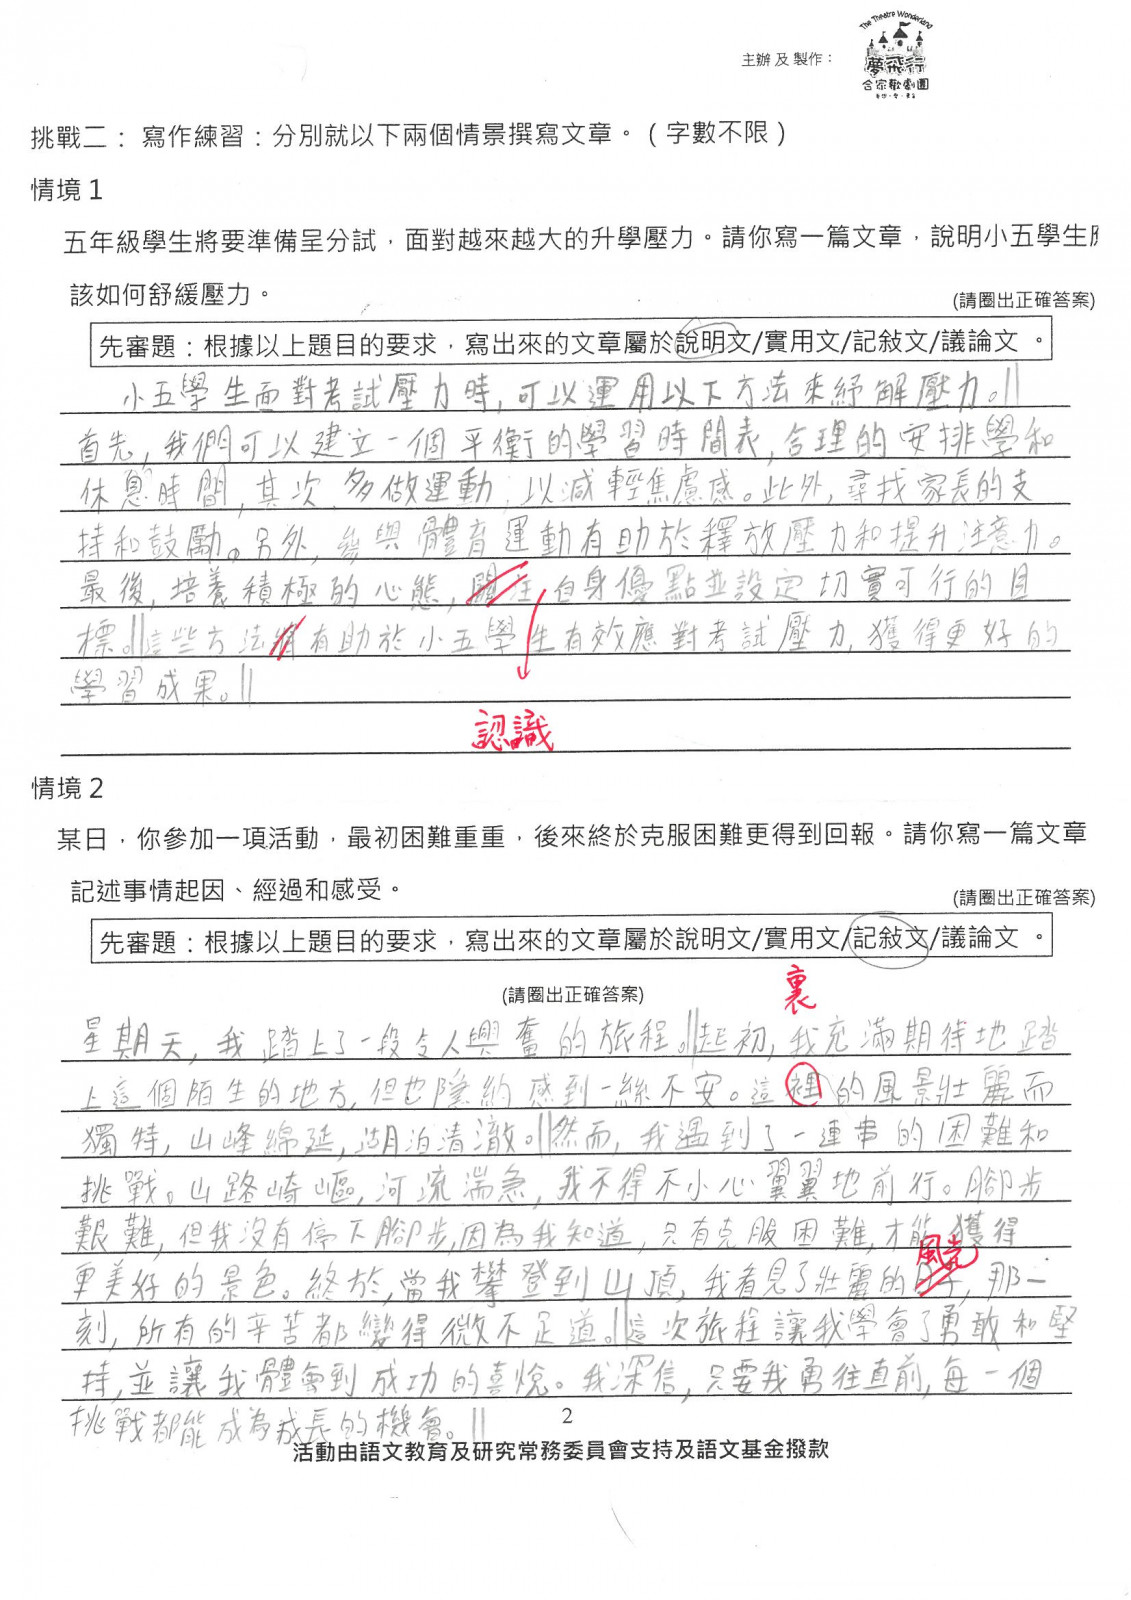 The Theatre Wonderland
主辦 及 製作：
夢飛行
合家歡劇團
挑戰二： 寫作練習：分別就以下兩個情景撰寫文章。（字數不限）
情境 1
五年級學生將要準備呈分試，面對越來越大的升學壓力。請你寫一篇文章，說明小五學生
該如何舒緩壓力。
(請圈出正確答案)
先審題：根據以上題目的要求，寫出來的文章屬於說明文/實用文/記敍文/議論文 。
小五學生面對考試壓力時,可以運用以下方法來紓解壓力。||
首先,我們可以建立一個平衡的學習時間表,合理的安排學和
休息時間,其次,多做運動,以減輕焦慮感。此外,尋找家長的支
持和鼓勵。另外,參與體育運動有助於釋放壓力和提升注意力。
最後,培養積極的心態,關注自身優點並設定切實可行的目
標。||這些方法將有助於小五學生有效應對考試壓力,獲得更好的
學習成果。||
認識
情境 2
某日，你參加一項活動，最初困難重重，後來終於克服困難更得到回報。請你寫一篇文章
記述事情起因、經過和感受。
(請圈出正確答案)
先審題：根據以上題目的要求，寫出來的文章屬於說明文/實用文/記敍文/議論文 。
裏
(請圈出正確答案)
星期天,我踏上了一段令人興奮的旅程。||起初,我充滿期待地踏
上這個陌生的地方,但也隱約感到一絲不安。這裡的風景壯麗而
獨特,山峰綿延,湖泊清澈。||然而,我遇到了一連串的困難和
挑戰。山路崎嶇,河流湍急,我不得不小心翼翼地前行。腳步
艱難,但我沒有停下腳步,因為我知道,只有克服困難,才能獲得
風光
更美好的景色。終於,當我攀登到山頂,我看見了壯麗的,那一
刻,所有的辛苦都變得微不足道。||這次旅程讓我學會了勇敢和堅
持,並讓我體會到成功的喜悅。我深信,只要我勇往直前,每一個
挑戰都能成為成長的機會。||
2
活動由語文教育及研究常務委員會支持及語文基金撥款